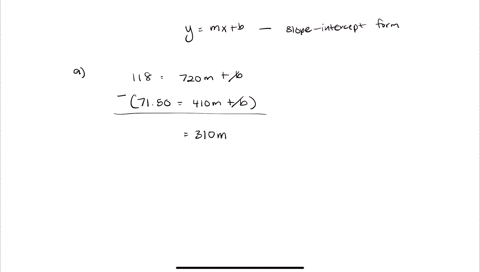 y = mx + b — slope-intercept form
a) 118 = 720m + b
- (71.50 = 410m + b)
= 310m